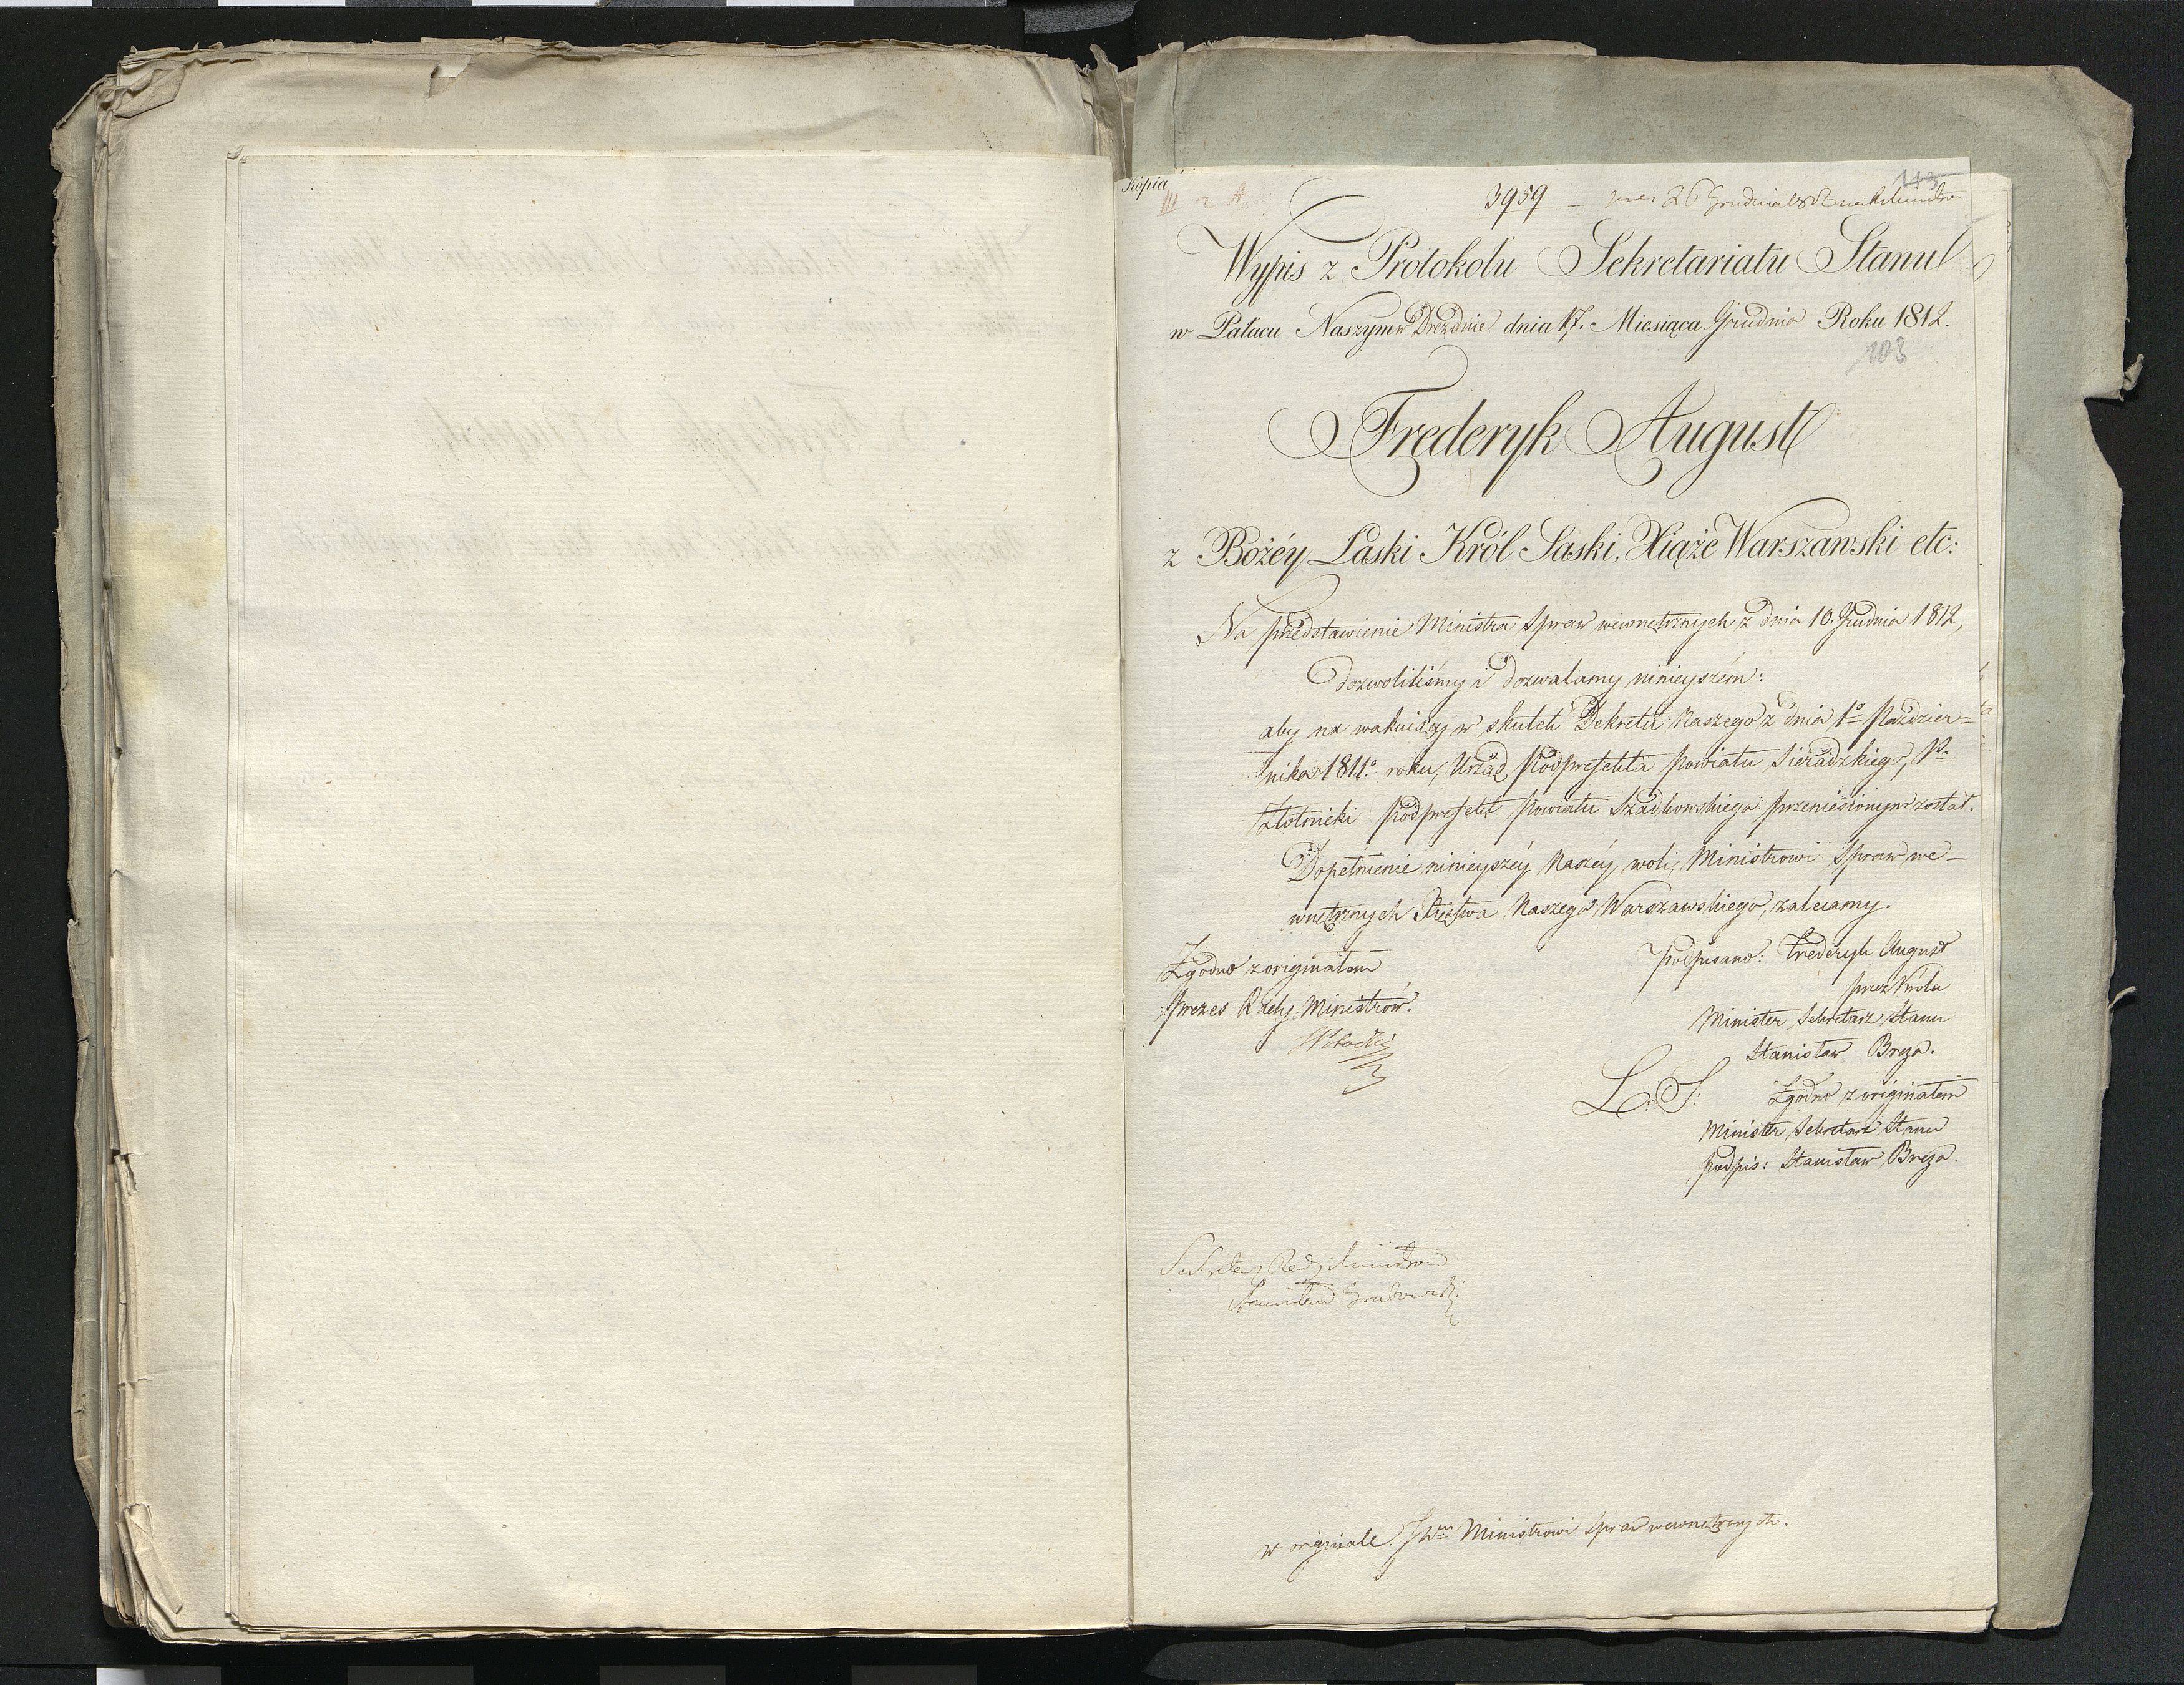 Kopia
III 2 A.
3959 – pres 26 Grudnia 1812
113
Wypis z Protokołu Sekretariatu Stanu
w Pałacu Naszym w Dreźdnie dnia 17. Miesiąca Grudnia Roku 1812.
103
Frederyk August
z Bożéy Łaski Król Saski, Xiąże Warszawski etc:
Na przedstawienie Ministra Spraw wewnętrznych z dnia 10. Grudnia 1812,
dozwoliliśmy i dozwalamy ninieyszém:
aby na wakuiący w skutek Dekretu Naszego z dnia 1o Paździer=
nika 1811o roku, Urząd Podprefekta Powiatu Sieradzkiego, P.
Złotnicki Podprefekt Powiatu Szadkowskiego przeniesionym został.
Dopełnienie ninieyszéy Naszéy woli, Ministrowi Spraw we–
wnętrznych Xięstwa Naszego Warszawskiego, zalecamy.
Zgodno z originałem
Prezes Rady Ministrów.
podpisano: Frederyk August
przez Króla
Minister Sekretarz Stanu
Stanisław Breza.
L: S:
Zgodno z originałem
Minister Sekretarz Stanu
podpis: Stanisław Breza.
Sekretarz Rady Ministrów
Stanisław Grabowski
w originale JWmu Ministrowi Spraw wewnętrznych.